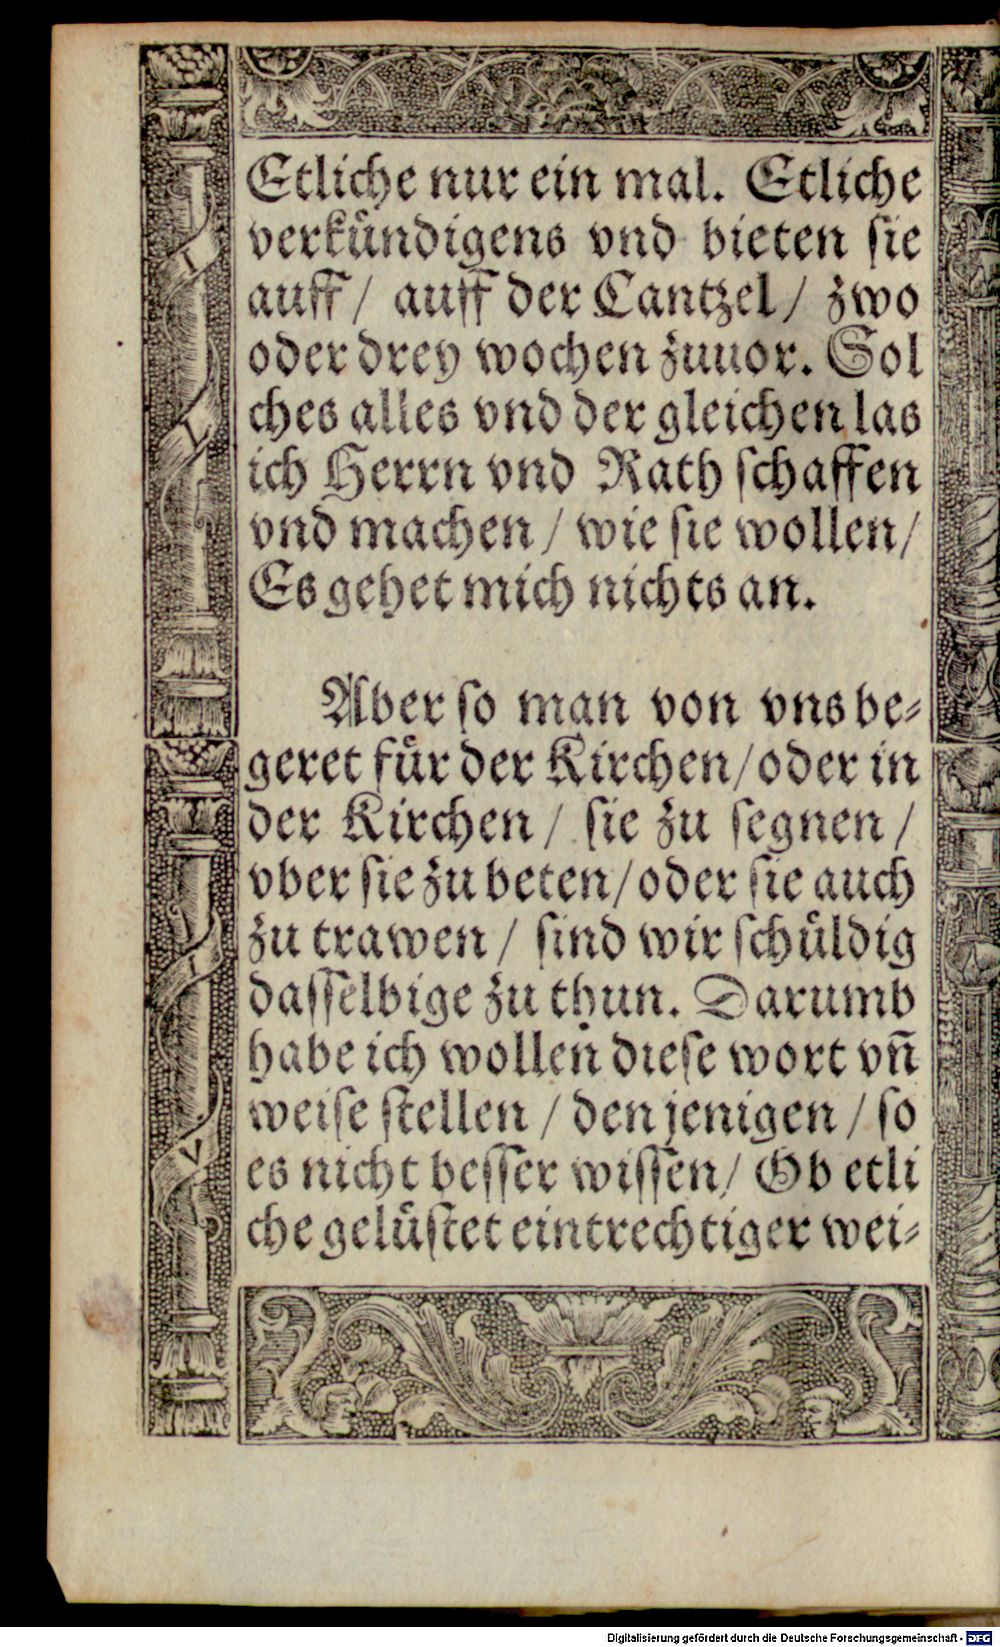 Etliche nur ein mal. Etliche
verkündigens vnd bieten sie
auff / auff der Cantzel / zwo
oder drey wochen zuuor. Sol
ches alles vnd der gleichen las
ich Herrn vnd Rath schaffen
vnd machen / wie sie wollen /
Es gehet mich nichts an.
Aber so man von vns be-
geret für der Kirchen / oder in
der Kirchen / sie zu segnen /
vber sie zu beten / oder sie auch
zu trawen / sind wir schüldig
dasselbige zu thun. Darumb
habe ich wollen diese wort vn̄
weise stellen / den jenigen / so
es nicht besser wissen / Ob etli
che gelüstet eintrechtiger wei-
Digitalisierung gefördert durch die Deutsche Forschungsgemeinschaft - DFG